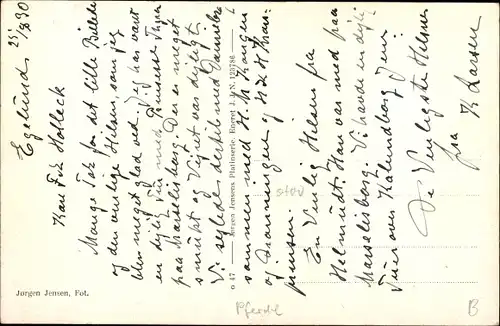 Egelund 25/8 30
Kære Frk Holbeck
Mange Tak for det lille Billede
og den venlige Hilsen, som jeg
blev meget glad ved. Jeg har været
en dejlig Tur med Prinsesse Thyra
paa Marselisborg. Der er meget
smukt og Vejret var dejligt.
Vi sejlede dertil med Dannebrog
sammen med H. M. Kongen
og Dronningen og H K H Kron-
prinsen.
En Venlig Hilsen fra
Helmudt. Han var med paa
Marselisborg. Vi havde en dejlig
Tur over Kalundborg hjem.
De Venligste Hilsner
fra K Larsen
o 47 Jørgen Jensens Phülnserie. Eneret J. J. N. 123786
Jørgen Jensen, Fot.
Pferde
B